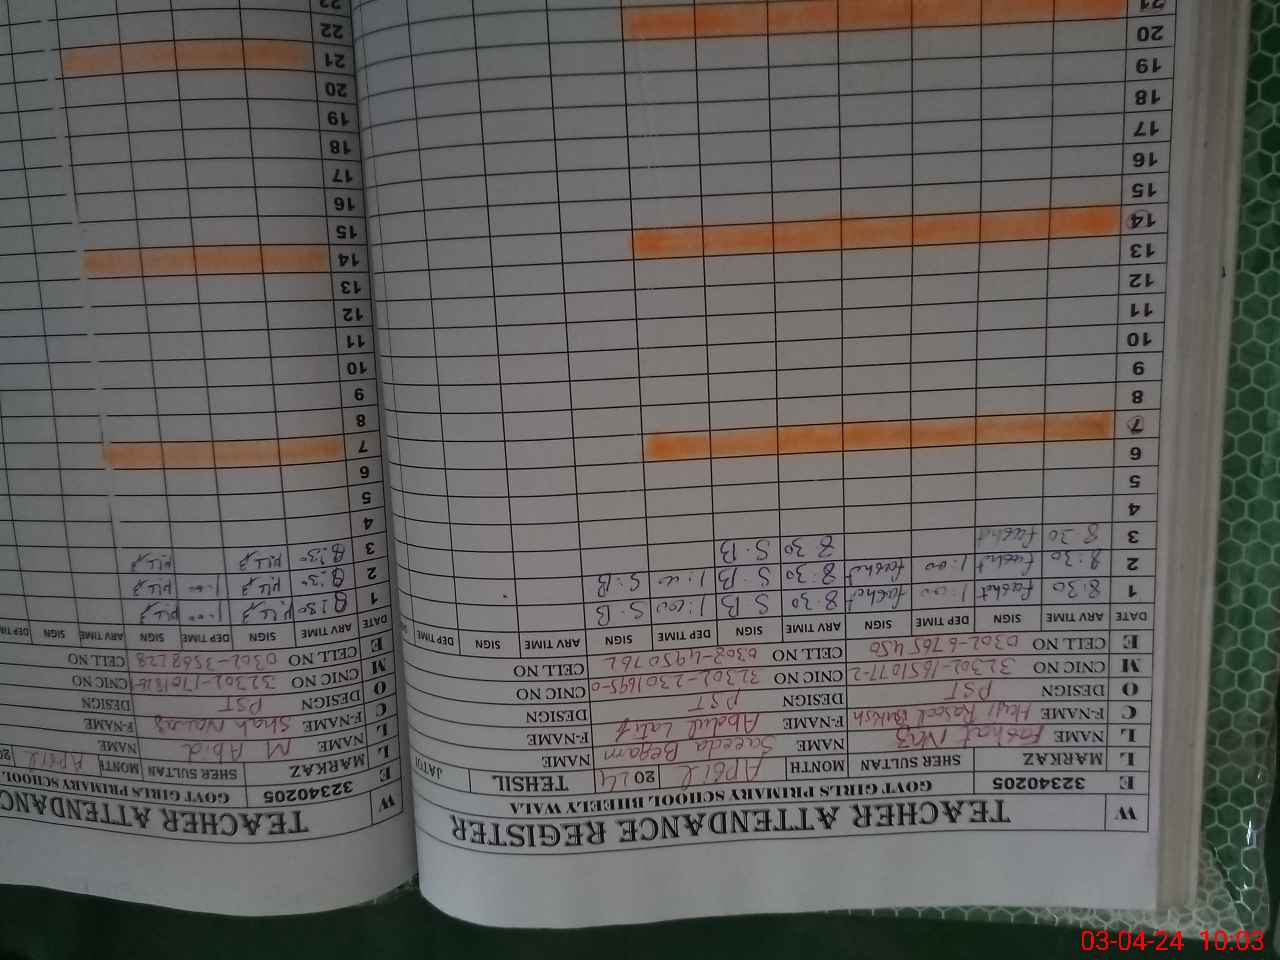 TEACHER ATTENDANCE REGISTER
W E L L C O M E
32340205 GOVT GIRLS PRIMARY SCHOOL BHEELY WALA
MARKAZ SHER SULTAN MONTH April 2024 TEHSIL JATOI
NAME Farhat Naz NAME Saeeda Begam NAME
F-NAME Haji Rasool Buksh F-NAME Abdul Latif F-NAME
DESIGN PST DESIGN PST DESIGN
CNIC NO 32302-1651077-2 CNIC NO 32302-2301695-0 CNIC NO
CELL NO 0302-6705450 CELL NO 0308-4950762 CELL NO
DATE ARV TIME SIGN DEP TIME SIGN ARV TIME SIGN DEP TIME SIGN ARV TIME SIGN DEP TIME
1 8:30 Farhat 1:00 Farhat 8:30 S.B 1:00 S.B
2 8:30 Farhat 1:00 Farhat 8:30 S.B 1:00 S.B
3 8:30 Farhat 8:30 S.B
4
5
6
7
8
9
10
11
12
13
14
15
16
17
18
19
20
21
TEACHER ATTENDANC
W E L L C O M E
32340205 GOVT GIRLS PRIMARY SCHOOL
MARKAZ SHER SULTAN MONTH April 20
NAME M Abid NAME
F-NAME Shah Nawaz F-NAME
DESIGN PST DESIGN
CNIC NO CNIC NO
CELL NO 0302-3568228 CELL NO
DATE ARV TIME SIGN DEP TIME SIGN ARV TIME SIGN DEP TIME
1 8:30 1:00
2 8:30 1:00
3 8:30
4
5
6
7
8
9
10
11
12
13
14
15
16
17
18
19
20
21
22
23
03-04-24 10:03